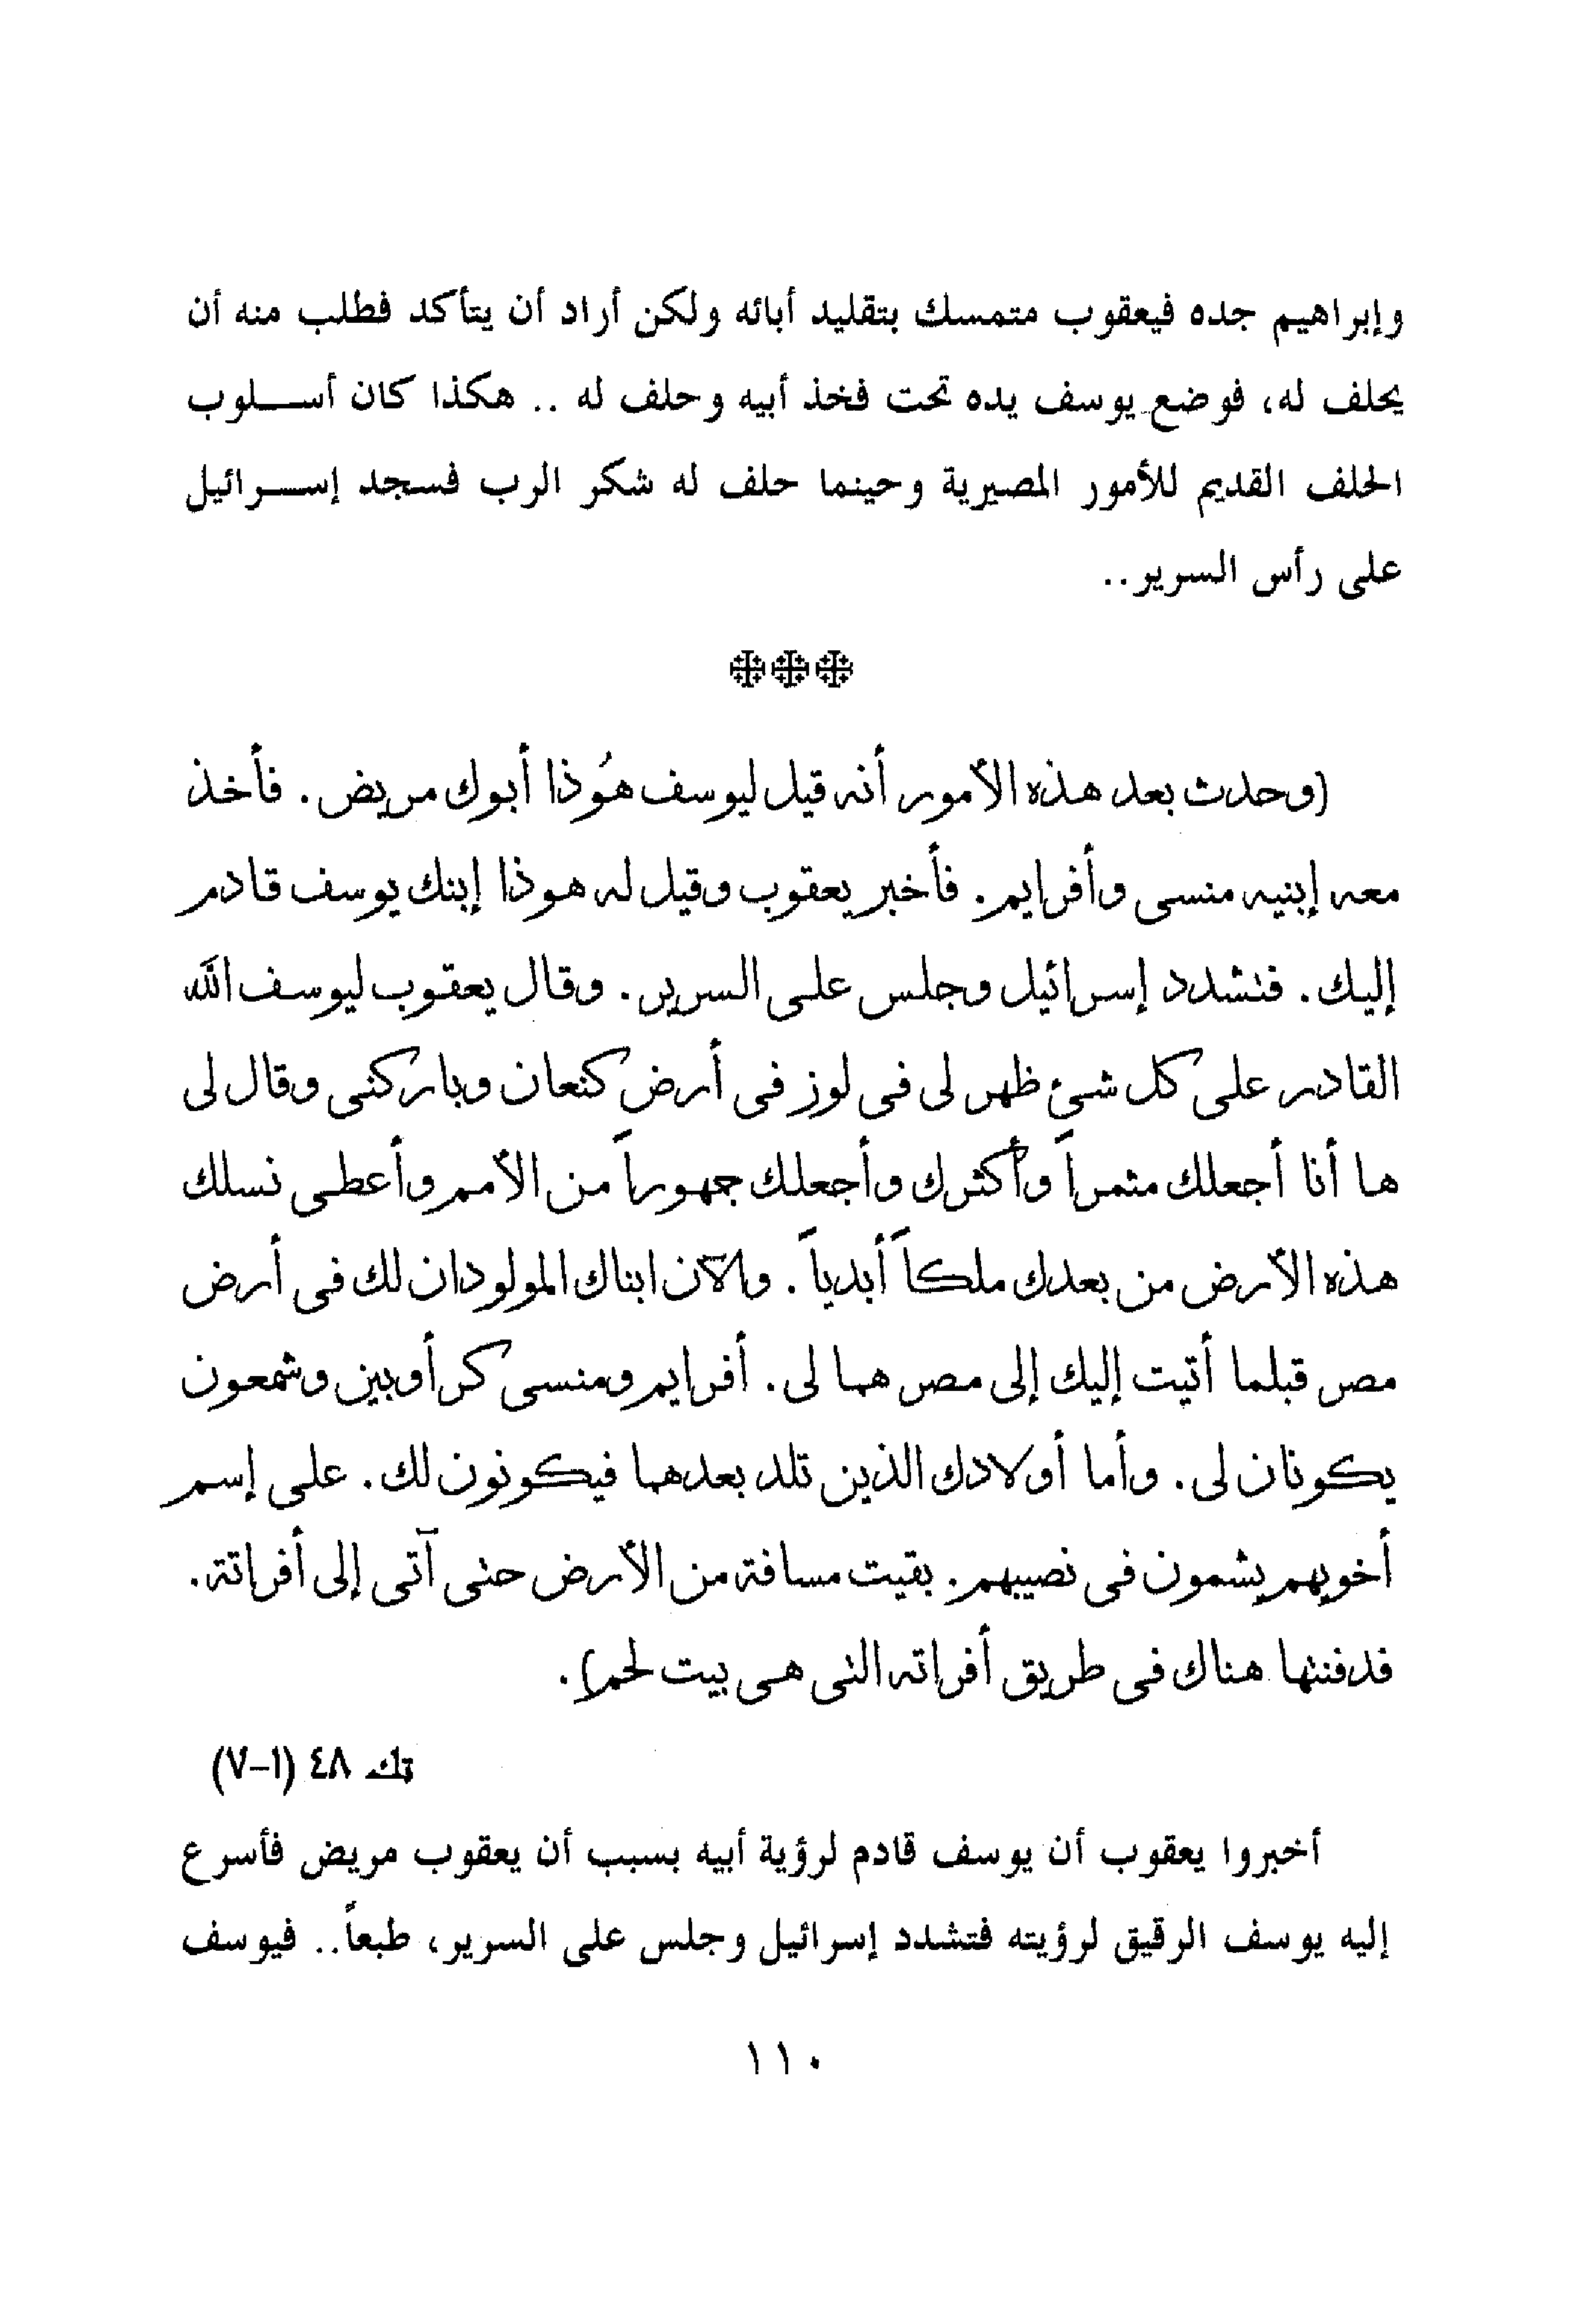 وإبراهيم جده فيعقوب متمسك بتقليد أبائه ولكن أراد أن يتأكد فطلب منه أن
يحلف له، فوضع يوسف يده تحت فخذ أبيه وحلف له .. هكذا كان أســـلوب
الحلف القديم للأمور المصيرية وحينما حلف له شكر الرب فسجد إســـرائيل
على رأس السرير..
(وحدث بعد هذه الأمور أنه قيل ليوسف هُوذا أبوك مريض. فأخذ
معه إبنيه منسى وأفرايم. فأخبر يعقوب وقيل له هوذا إبنك يوسف قادم
إليك. فتشدد إسرائيل وجلس على السرير. وقال يعقوب ليوسف الله
القادر على كل شئ ظهر لى فى لوز فى أرض كنعان وباركنى وقال لى
ها أنا أجعلك مثمراً وأكثرك وأجعلك جمهوراً من الأمم وأعطى نسلك
هذه الأرض من بعدك ملكاً أبدياً. والآن ابناك المولودان لك فى أرض
مصر قبلما أتيت إليك إلى مصر هما لى. أفرايم ومنسى كرأوبين وشمعون
يكونان لى. وأما أولادك الذين تلد بعدهما فيكونون لك. على إسم
أخويهم يسمون فى نصيبهم. بقيت مسافة من الأرض حتى آتى إلى أفراتة.
فدفنتها هناك فى طريق أفراته التى هى بيت لحم).
تك ٤٨ (١-٧)
أخبروا يعقوب أن يوسف قادم لرؤية أبيه بسبب أن يعقوب مريض فأسرع
إليه يوسف الرقيق لرؤيته فتشدد إسرائيل وجلس على السرير، طبعاً.. فيوسف
١١٠